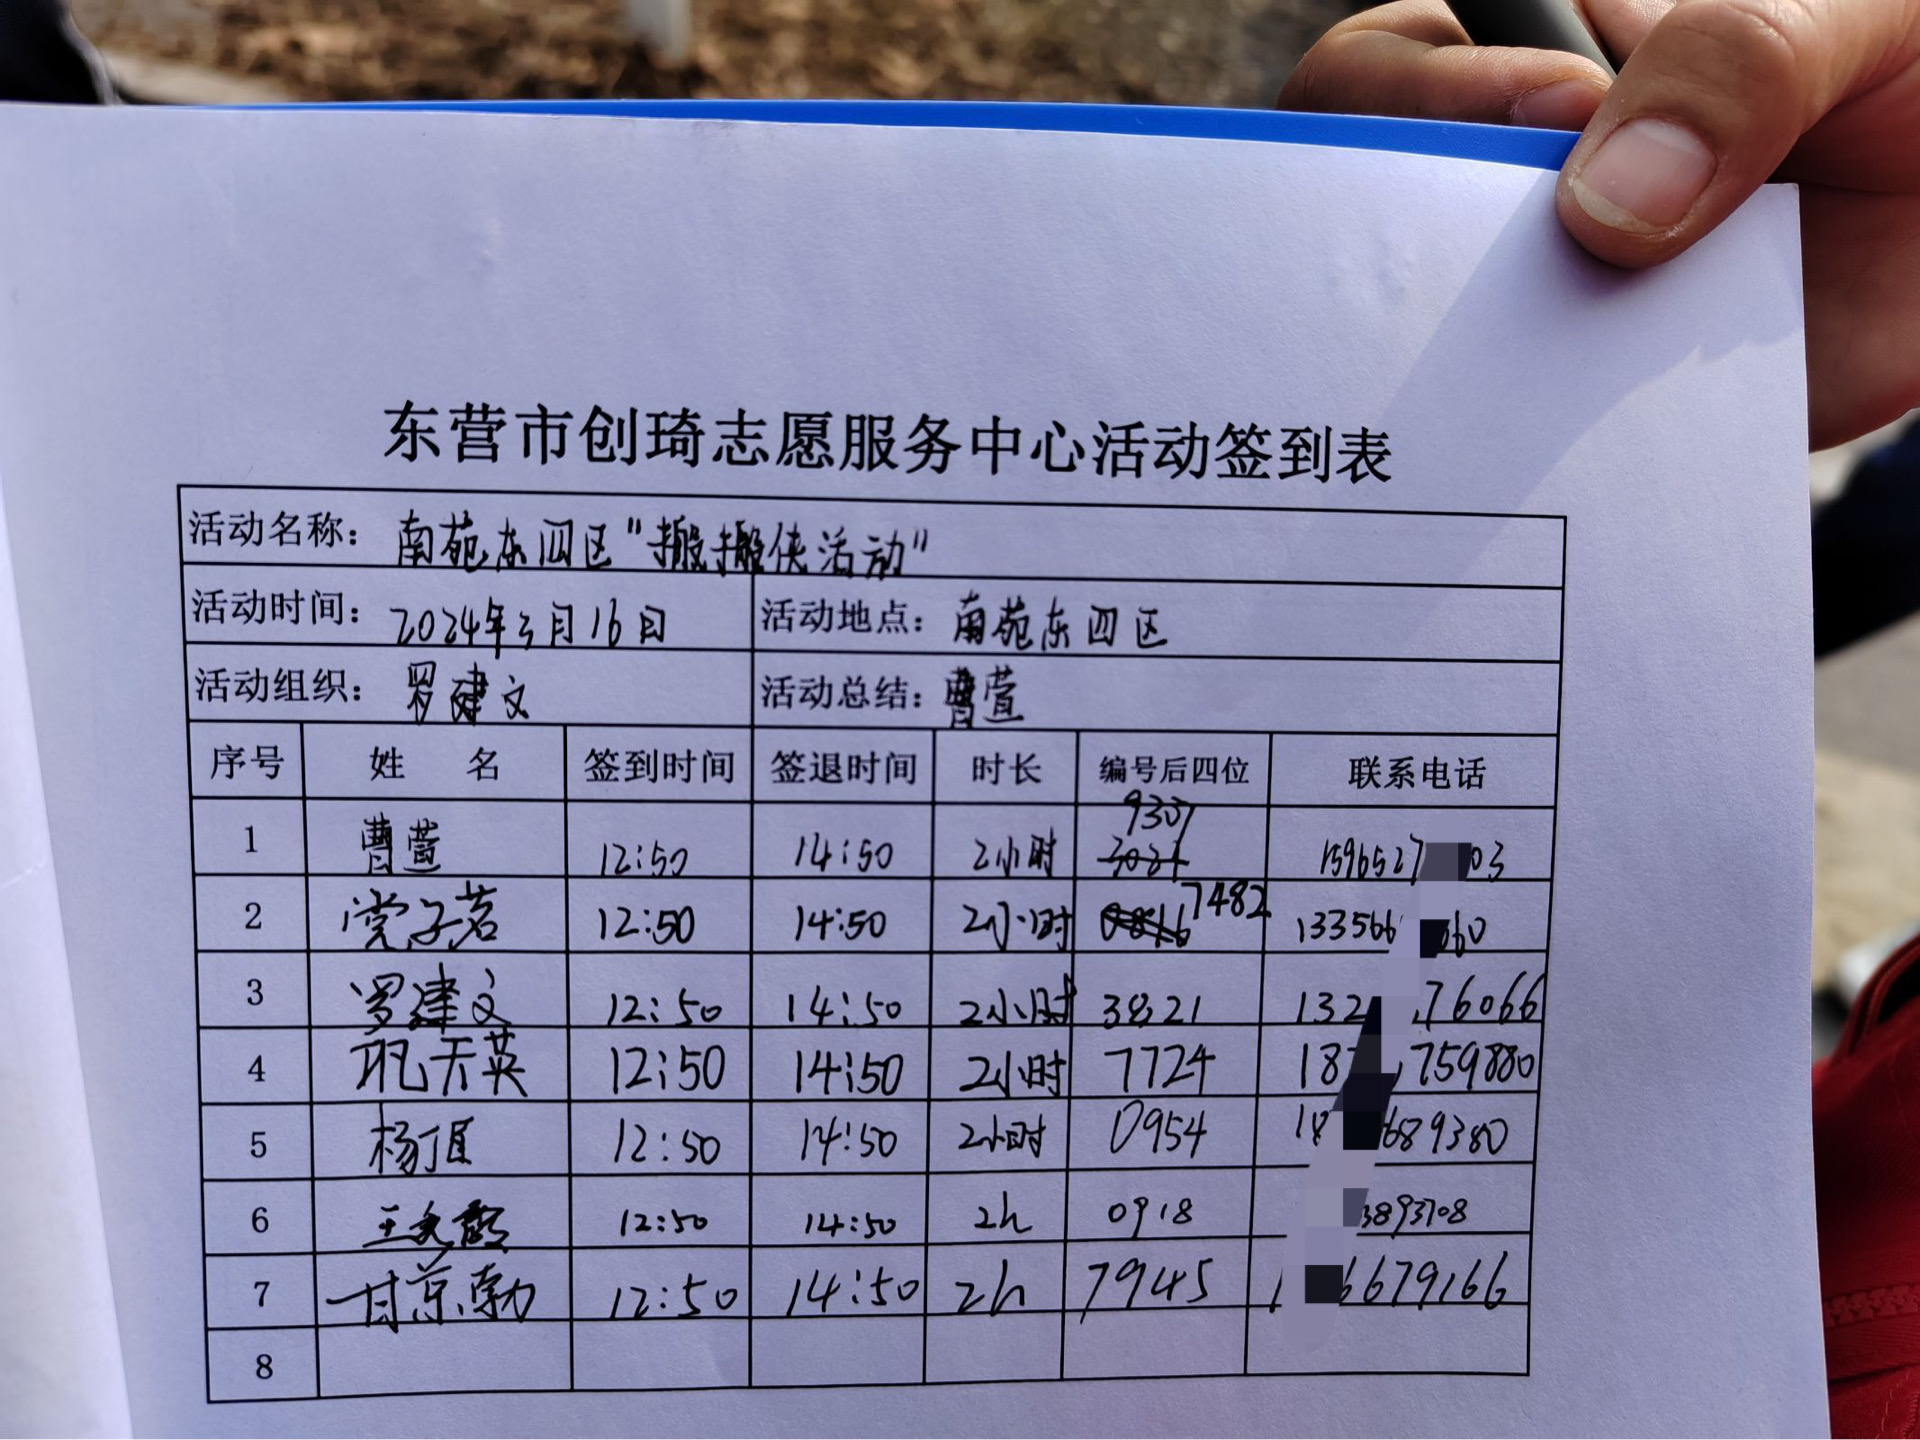 东营市创琦志愿服务中心活动签到表
活动名称：南苑东四区“搬搬侠活动”
活动时间：2024年3月16日 活动地点：南苑东四区
活动组织：罗建文 活动总结：曹萱
序号 姓 名 签到时间 签退时间 时长 编号后四位 联系电话
1 曹萱 12:50 14:50 2小时 9307 1596527 03
2 党子茗 12:50 14:50 2小时 7482 133566 660
3 罗建文 12:50 14:50 2小时 3821 132 76066
4 巩天英 12:50 14:50 2小时 7724 18 759880
5 杨 12:50 14:50 2小时 0954 18 689380
6 王 12:50 14:50 2h 0918 3893708
7 甘京勃 12:50 14:50 2h 7945 1 6679166
8